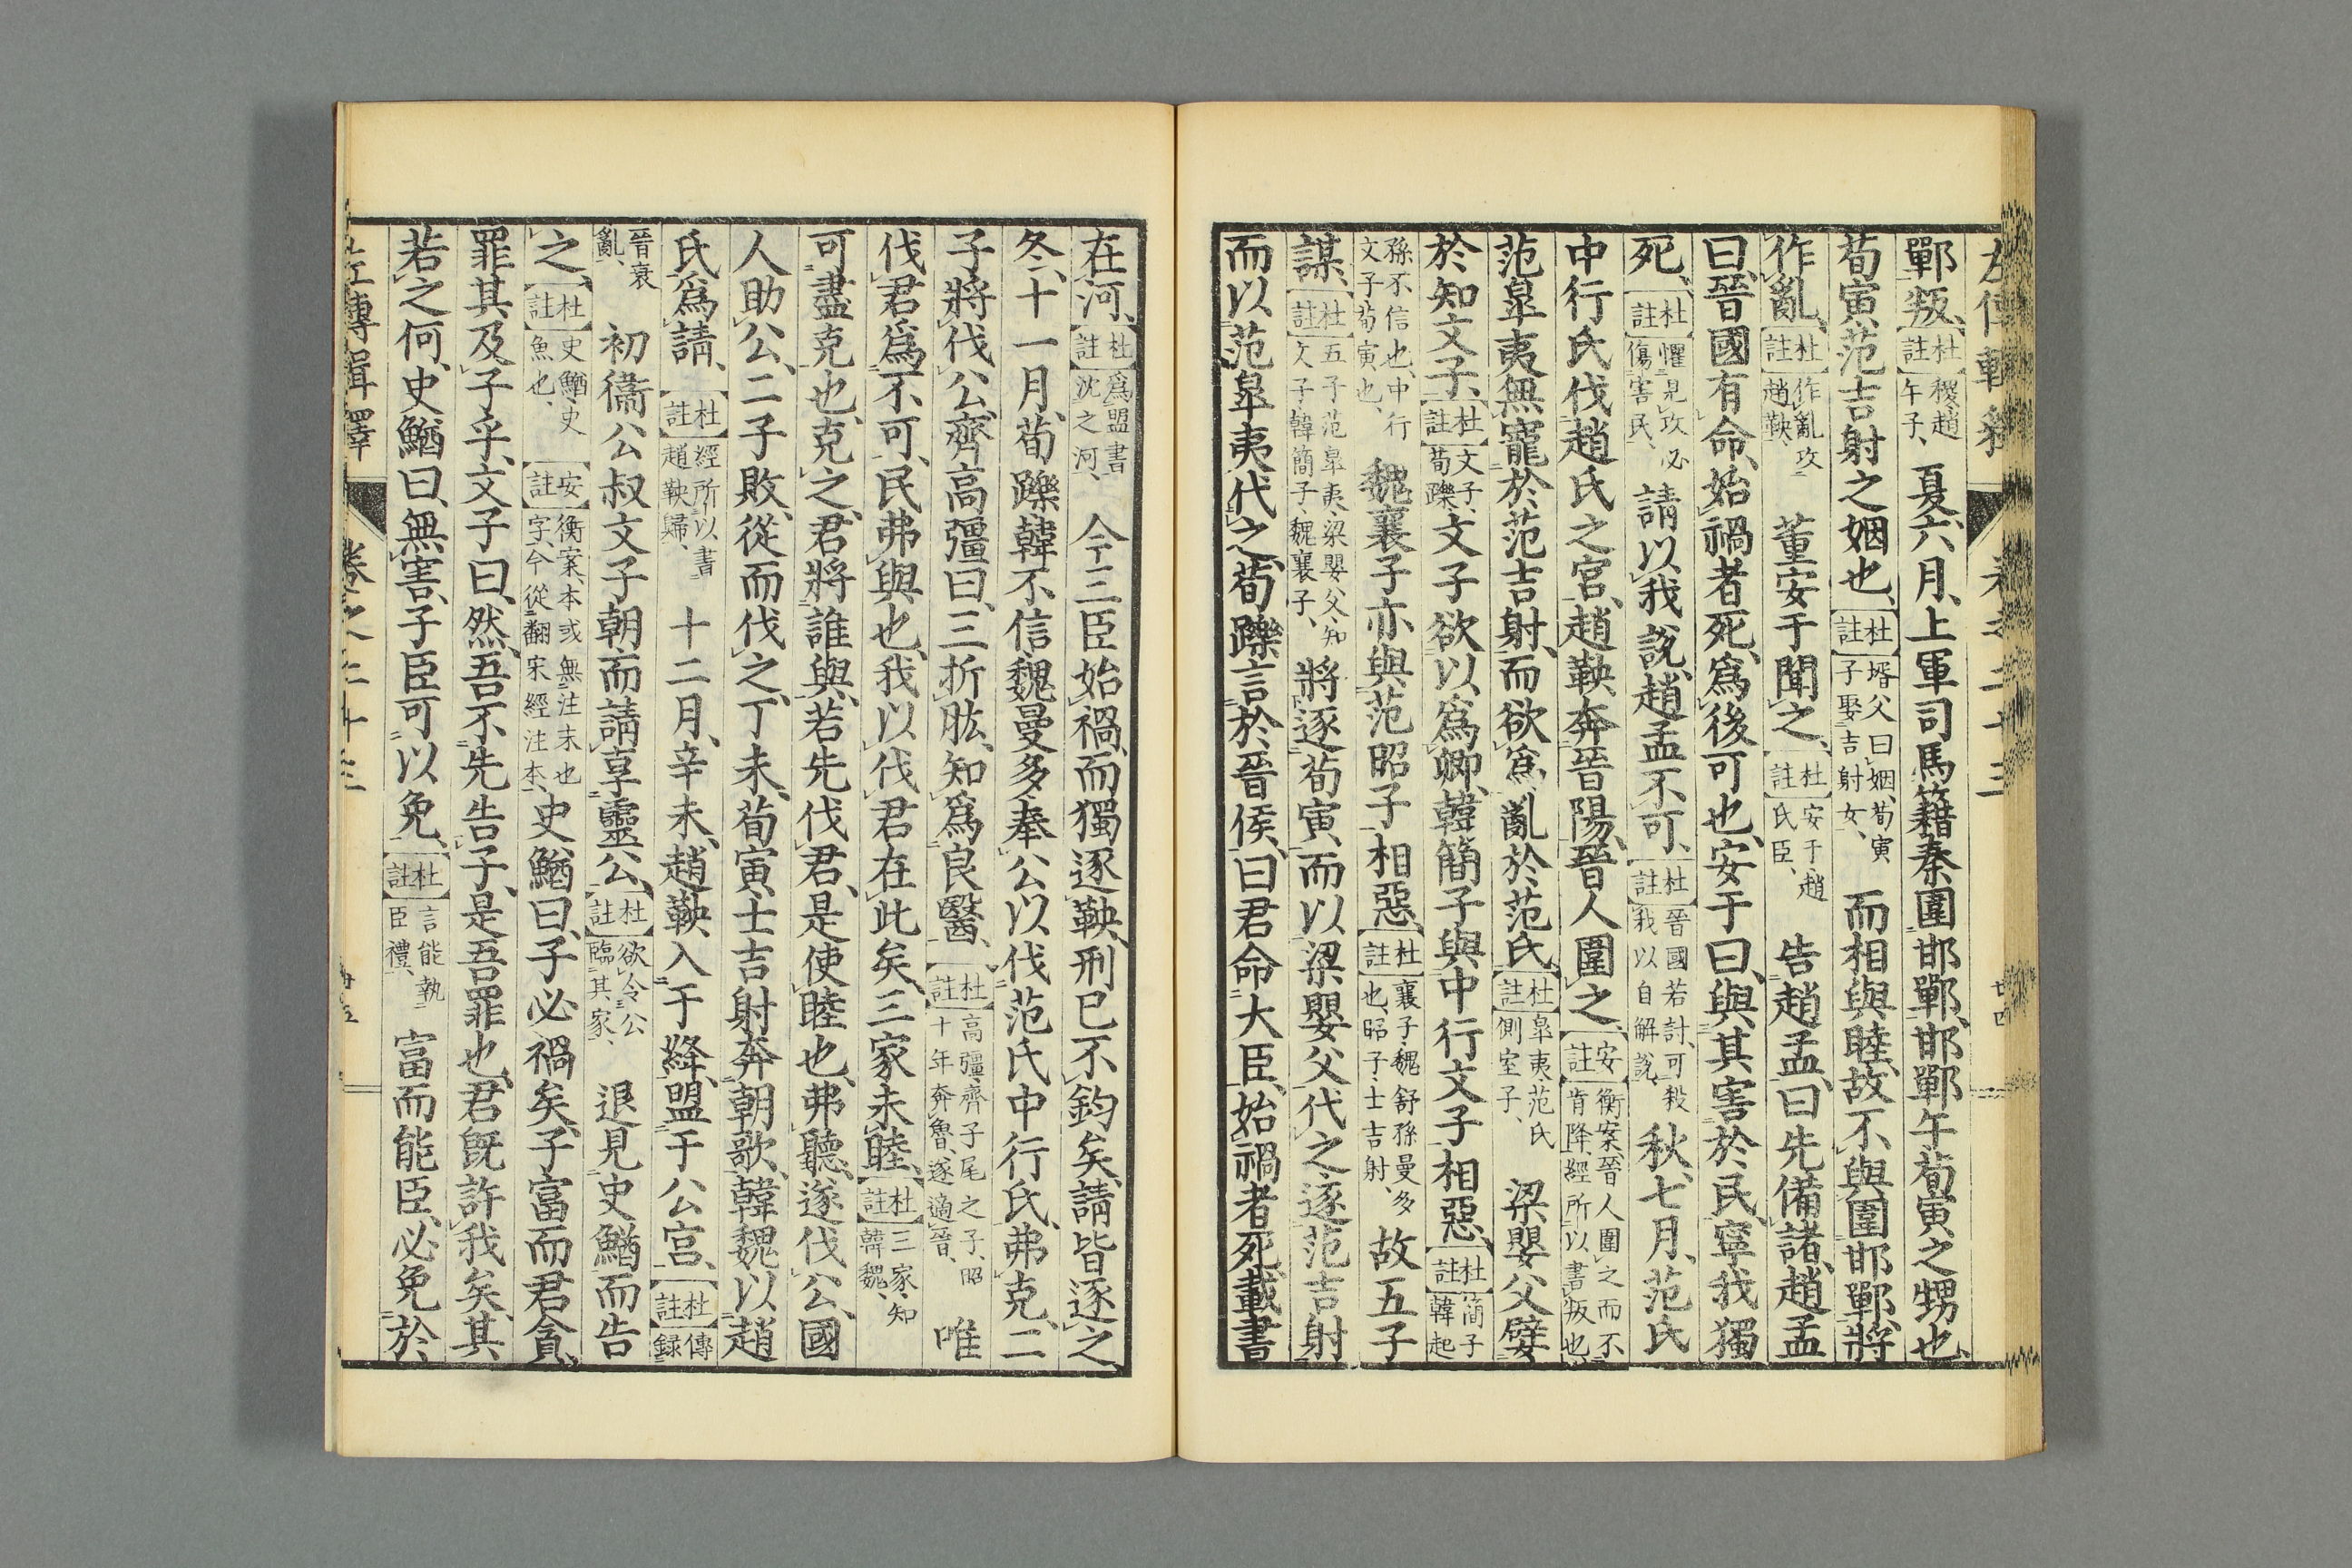 鄲叛、杜註稷趙午子、夏六月、上軍司馬籍秦圍邯鄲、邯鄲午荀寅之甥也、
荀寅范吉射之姻也、杜註壻父曰姻、荀寅子娶吉射女、而相與睦、故不與圍邯鄲、將
作亂、杜註作亂攻趙鞅、董安于聞之、杜註安于、趙氏臣、告趙孟、曰先備諸、趙孟
曰、晉國有命、始禍者死、爲後可也、安于曰、與其害於民、寧我獨
死、杜註懼見攻必傷害民、請以我說、趙孟不可、杜註晉國若討、可殺我以自解說、秋、七月、范氏
中行氏伐趙氏之宮、趙鞅奔晉陽、晉人圍之、安註衡案、晉人圍之而不肯降、經所以書叛也、
范皐夷無寵於范吉射、而欲爲亂於范氏、杜註皐夷、范氏側室子、梁嬰父嬖
於知文子、杜註文子、荀躒、文子欲以爲卿、韓簡子與中行文子相惡、杜註簡子韓起
孫不信也、中行文子荀寅也、魏襄子亦與范昭子相惡、杜註襄子、魏舒孫曼多也、昭子、士吉射、故五子
謀、杜註五子、范皐夷、梁嬰父、知文子、韓簡子、魏襄子、將逐荀寅、而以梁嬰父代之、逐范吉射
而以范皐夷代之、荀躒言於晉侯、曰君命大臣、始禍者死、載書
在河、杜註爲盟書沈之河、今三臣始禍、而獨逐鞅、刑已不鈞矣、請皆逐之、
冬、十一月、荀躒韓不信魏曼多、奉公以伐范氏中行氏、弗克、二
子將伐公、齊高彊曰、三折肱、知爲良醫、杜註高彊、齊子尾之子、昭十年奔魯、遂適晉、唯
伐君爲不可、民弗與也、我以伐君在此矣、三家未睦、杜註三家、知韓魏、
可盡克也、克之、君將誰與、若先伐君、是使睦也、弗聽、遂伐公、國
人助公、二子敗、從而伐之、丁未、荀寅士吉射奔朝歌、韓魏以趙
氏爲請、杜註經所以書趙鞅歸、十二月、辛未、趙鞅入于絳、盟于公宮、杜註傳錄
晉衰亂、初衞公叔文子朝、而請享靈公、杜註欲令公臨其家、退見史鰌而告
之、杜註史鰌、史魚也、安註衡案、本或無注末也字、今從翻宋經注本、史鰌曰、子必禍矣、子富而君貪、
罪其及子乎、文子曰、然、吾不先告子、是吾罪也、君旣許我矣、其
若之何、史鰌曰、無害、子臣可以免、杜註言能執臣禮、富而能臣、必免於
左傳輯釋 卷之二十三 廿五